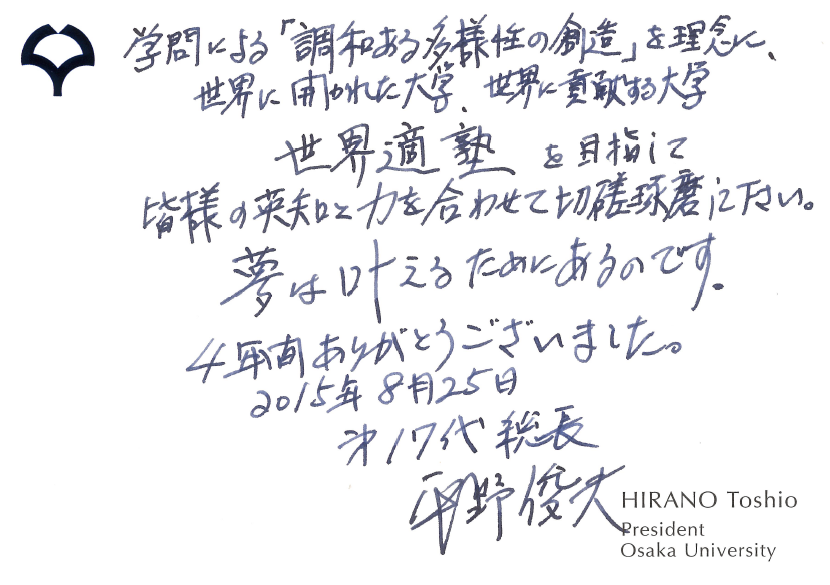 学問による「調和ある多様性の創造」を理念に、
世界に開かれた大学、世界に貢献する大学
世界適塾 を目指して
皆様の英知と力を合わせて切磋琢磨して下さい。
夢は叶えるためにあるのです。
4年間ありがとうございました。
2015年8月25日
第17代 総長
平野俊夫
HIRANO Toshio
President
Osaka University